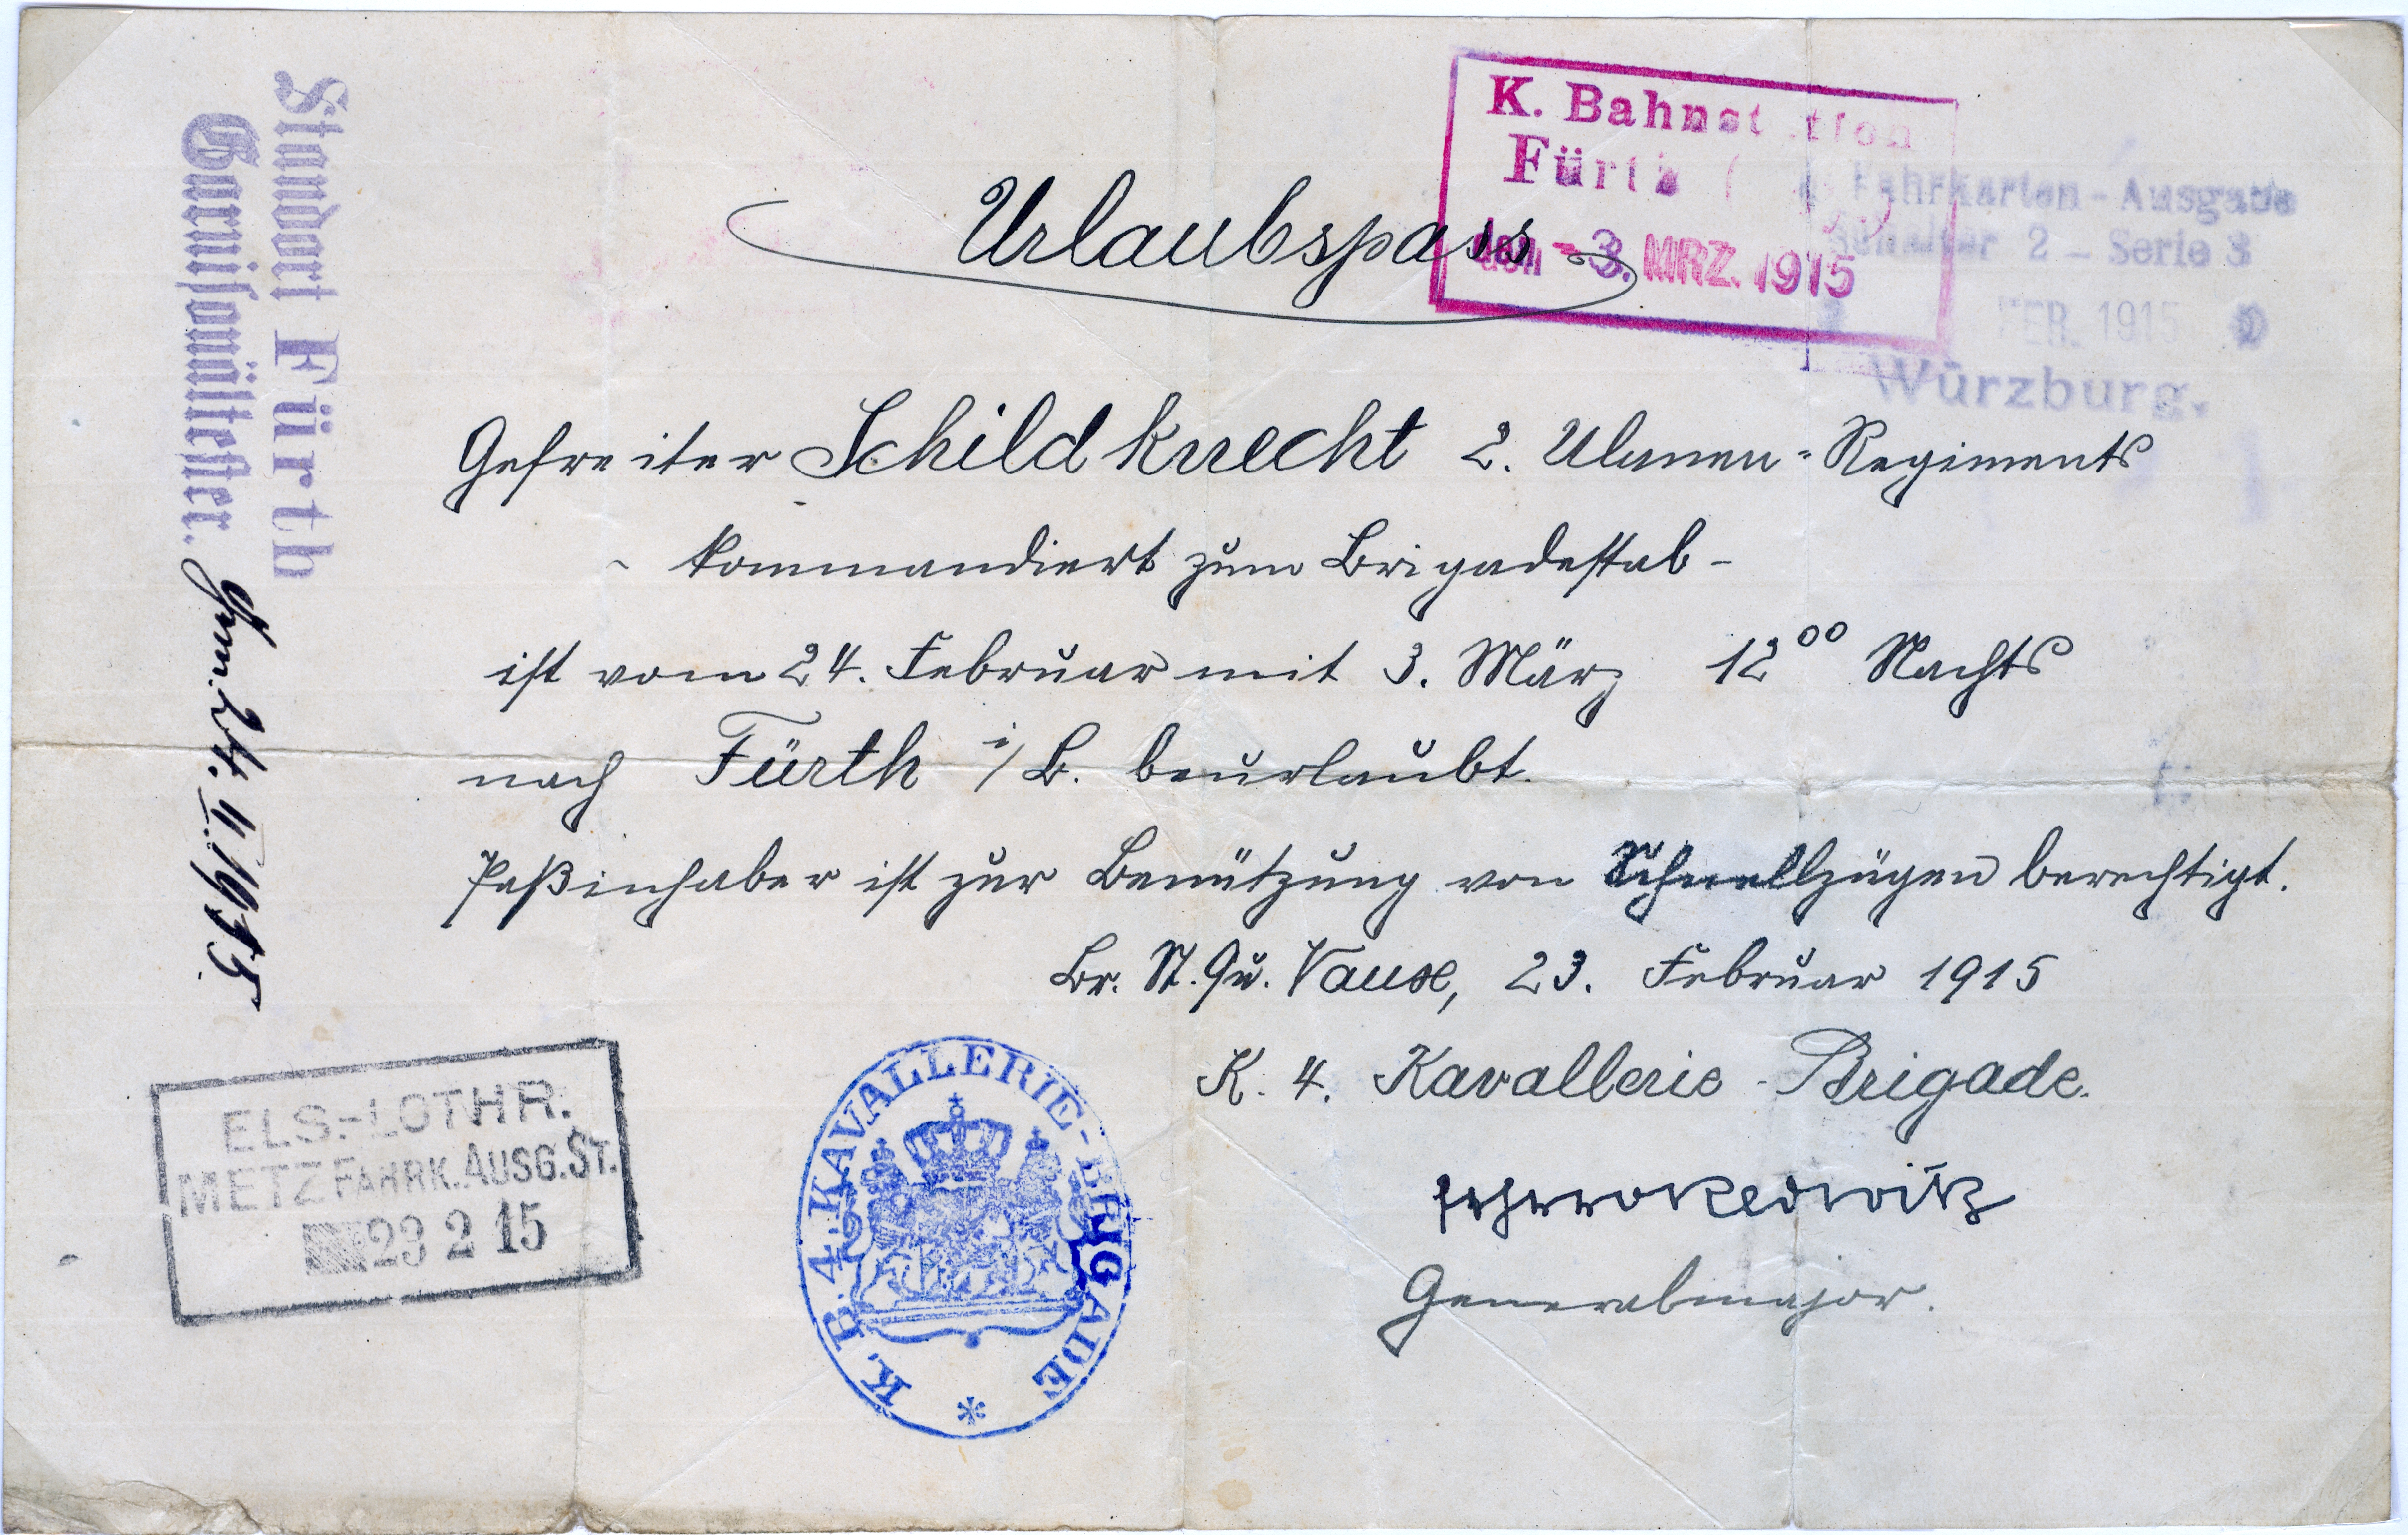 Urlaubspass
Gefreiter Schildknecht 2. Ulanen-Regiments
- kommandiert zum Brigadestab -
ist vom 24. Februar mit 3. März 12⁰⁰ Nachts
nach Fürth i/B. beurlaubt.
Paßinhaber ist zur Benützung von Schnellzügen berechtigt.
Br. St. Qu. Vaux, 23. Februar 1915
K. 4. Kavallerie-Brigade.
Generalmajor.
K. Bahnstation
Fürth
den -3. MRZ. 1915
Fahrkarten-Ausgabe
Schalter 2 - Serie 3
FEB. 1915
Würzburg.
Standort Fürth
Garnisonältester.
24. II. 1915
ELS.-LOTHR.
METZ FAHRK. AUSG. ST.
23 2 15
K. B. 4. KAVALLERIE-BRIGADE *